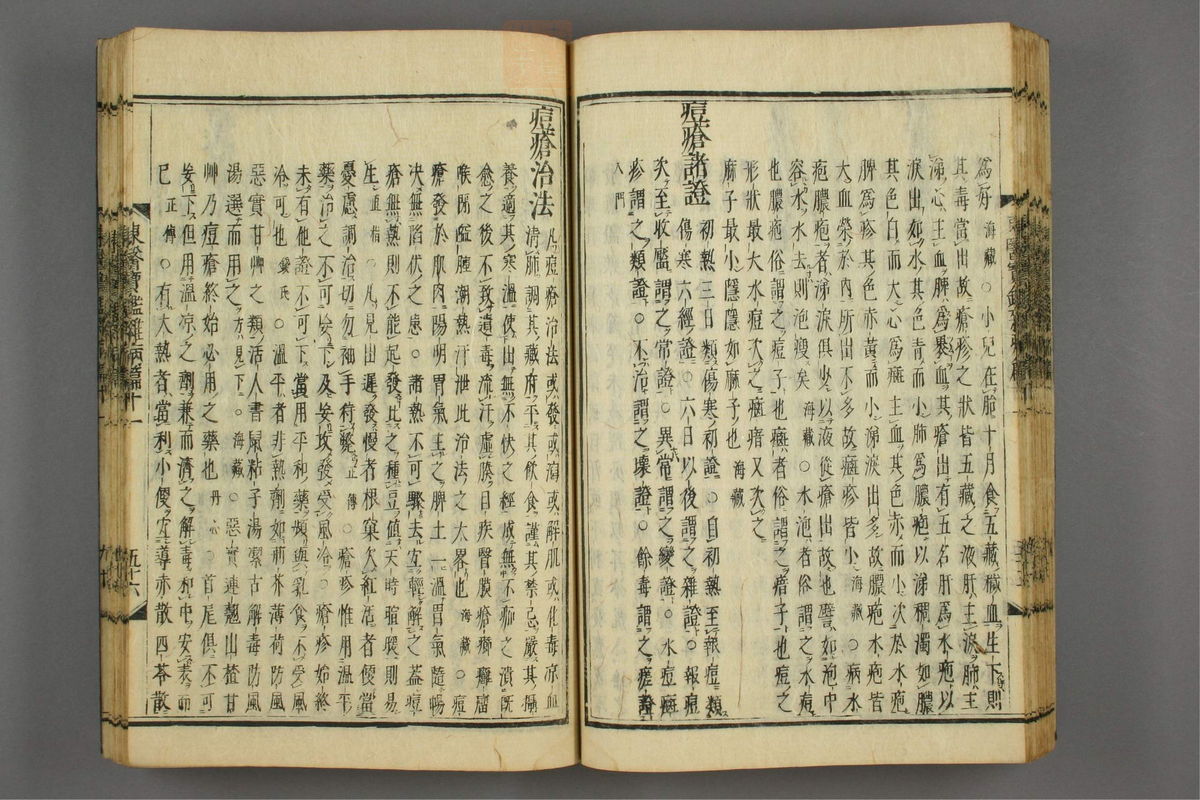 為好海藏○小兒在胎十月食五藏穢血生下則
其毒當出故瘡疹之狀皆五藏之液肝主淚肺主
涕心主血脾為裹血其瘡出有五名肝為水疱以
淚出如水其色青而小肺為膿疱以涕稠濁如膿
其色白而大心為癍主血其色赤而小次於水疱
脾為疹其色赤黃而小涕淚出多故膿疱水疱皆
大血榮於內所出不多故癍疹皆小海藏○病水
疱膿疱者涕淚俱少以液從瘡出故也譬如泡中
容水水去則泡瘦矣海藏○水泡者俗謂之水痘
也膿疱俗謂之痘子也癍者俗謂之瘖子也痘之
形狀最大水痘次之癍瘖又次之
麻子最小隱隱如麻子也海藏
痘瘡諸證
初熱三日類傷寒初證○自初熱至報痘類
傷寒六經證○六日以後謂之雜證○報痘
次至收靨謂之常證○異常謂之變證○水痘癍
疹謂之類證○不治謂之壞證○餘毒謂之瘥證
入門
痘瘡治法
凡瘡疹治法或發或瀉或解肌或化毒凉血
清肺調其藏府平其飲食謹其禁忌嚴其攝
養適其寒溫使出無不伏之經成無不痂之潰既
愈之後不致遺毒流汗虛腠目疾腎膜瘡癤癬瘤
喉閉嗌腫潮熱汗泄此治法之大畧也海藏○痘
瘡發於肌肉陽明胃氣主之脾土一溫胃氣隨暢
決無陷伏之患○諸熱不可驟去宜輕解之蓋痘
瘡無熱則不能起發比之種豆值天時暄暖則易
生直指○凡見出遲發慢者根窠欠紅活者便當
憂慮調治切勿袖手待斃正傳○瘡疹惟用溫平
藥治之不可妄下及妄攻發受風冷○瘡疹始終
未有他證不可下當用平和藥頻與乳食不受風
冷可也錢氏○溫平者非熱劑如荊芥薄荷防風
惡實甘艸之類活人書鼠粘子湯潔古解毒防風
湯選而用之方見下海藏○惡實連翹山楂甘
艸乃痘瘡終始必用之藥也丹心○首尾俱不可
妄下但用溫凉之劑兼而濟之解毒和中安表而
已正傳○有大熱者當利小便宜導赤散四苓散
東醫寶鑑雜病篇十一
五十六